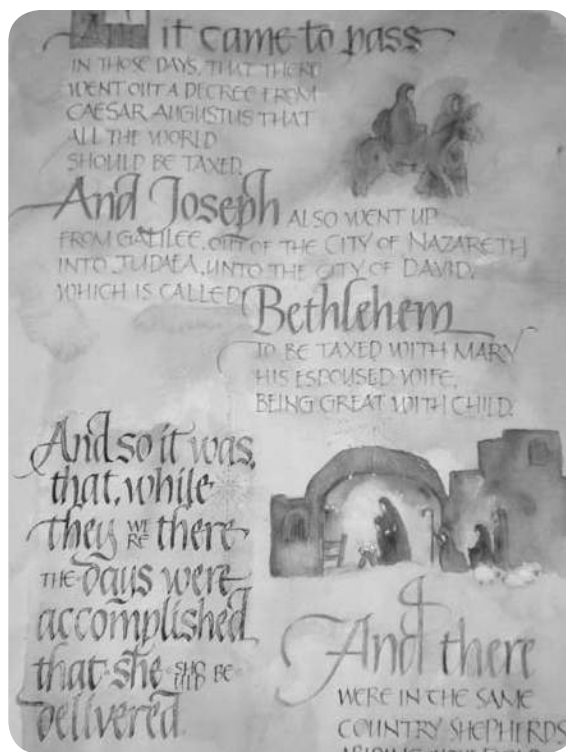 it came to pass
IN THOSE DAYS, THAT THERE
WENT OUT A DECREE FROM
CAESAR AUGUSTUS THAT
ALL THE WORLD
SHOULD BE TAXED.
And Joseph ALSO WENT UP
FROM GALILEE, OUT OF THE CITY OF NAZARETH
INTO JUDAEA, UNTO THE CITY OF DAVID,
WHICH IS CALLED Bethlehem
TO BE TAXED WITH MARY
HIS ESPOUSED WIFE,
BEING GREAT WITH CHILD.
And so it was,
that, while
they WERE there
THE days were
accomplished
that she SHOULD BE
delivered.
And there
WERE IN THE SAME
COUNTRY SHEPHERDS